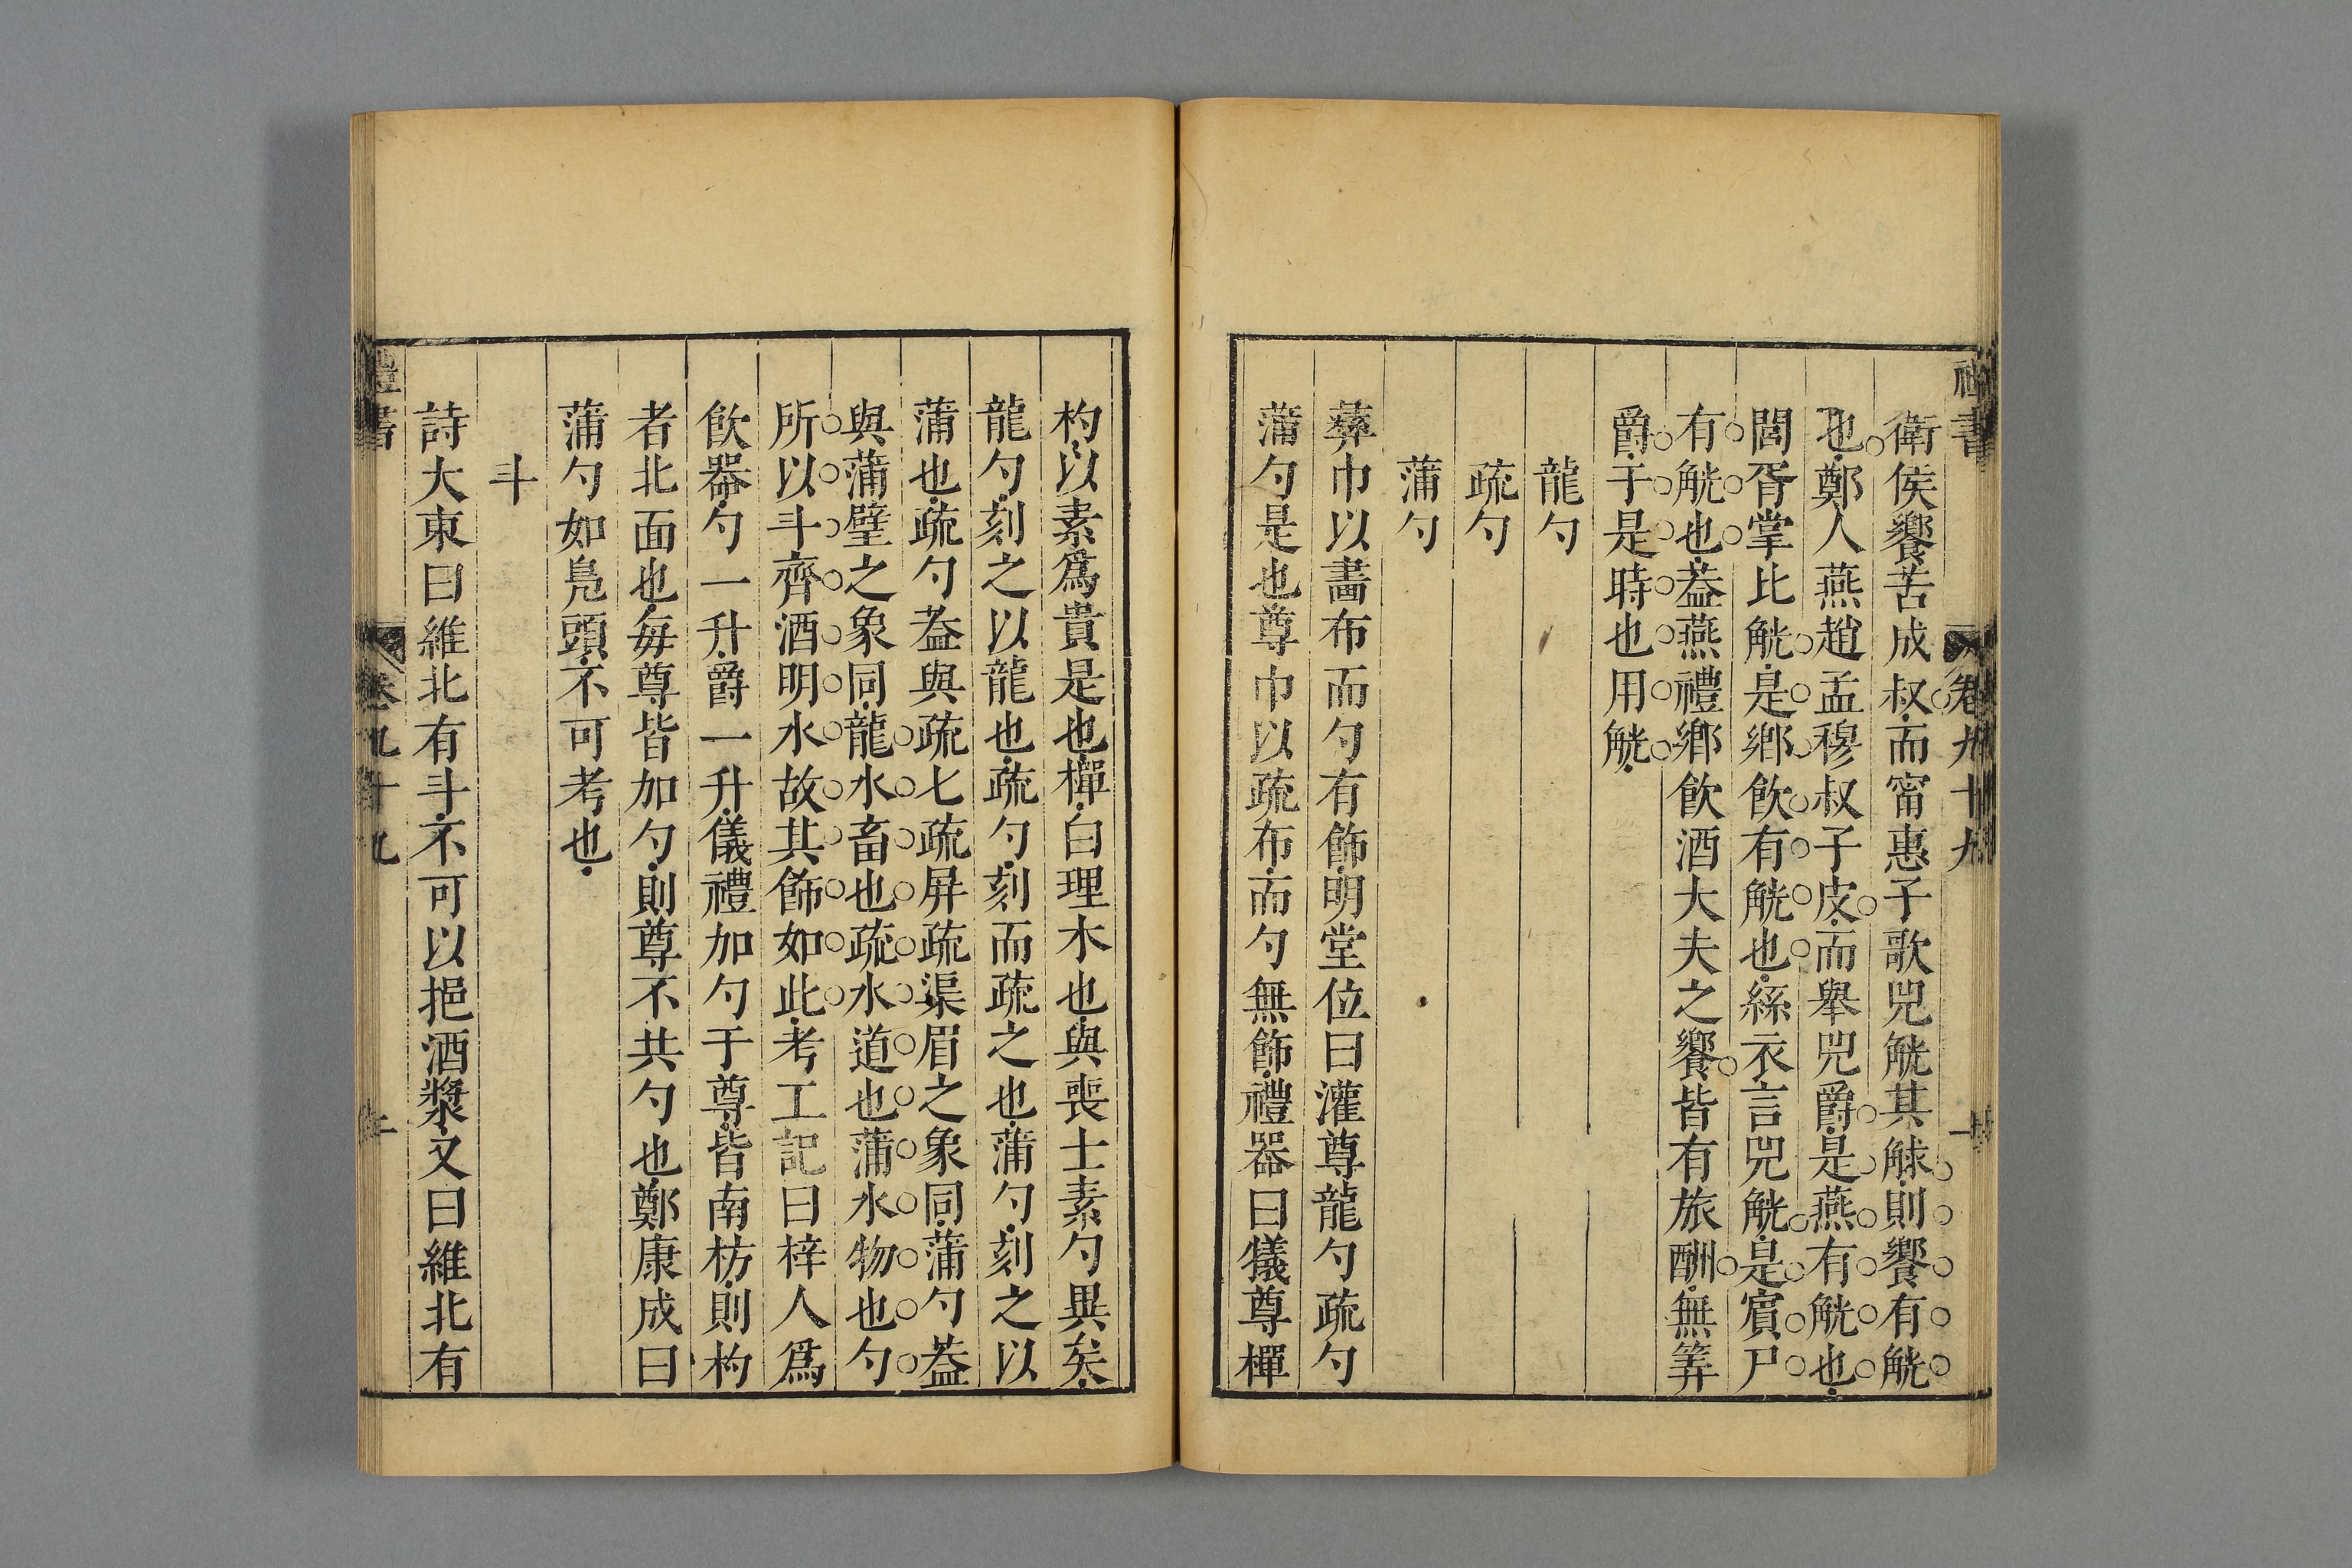 禮書 卷九十九
衛侯饗苦成叔而甯惠子歌兕觥其觩則饗有觥
也鄭人燕趙孟穆叔子皮而舉兕爵是燕有觥也
閭胥掌比觥是鄉飲有觥也絲衣言兕觥是賔尸
有觥也葢燕禮鄉飲酒大夫之饗皆有旅酬無筭
爵于是時也用觥
龍勺
疏勺
蒲勺
彜巾以畵布而勺有飾明堂位曰灌尊龍勺疏勺
蒲勺是也尊巾以疏布而勺無飾禮器曰犧尊樿
杓以素爲貴是也樿白理木也與喪士素勺異矣
龍勺刻之以龍也疏勺刻而疏之也蒲勺刻之以
蒲也疏勺葢與疏匕疏屏疏渠眉之象同蒲勺葢
與蒲璧之象同龍水畜也疏水道也蒲水物也勺
所以斗齊酒明水故其飾如此考工記曰梓人爲
飲器勺一升爵一升儀禮加勺于尊皆南枋則杓
者北面也每尊皆加勺則尊不共勺也鄭康成曰
蒲勺如鳧頭不可考也
斗
詩大東曰維北有斗不可以挹酒漿又曰維北有
禮書 卷九十九